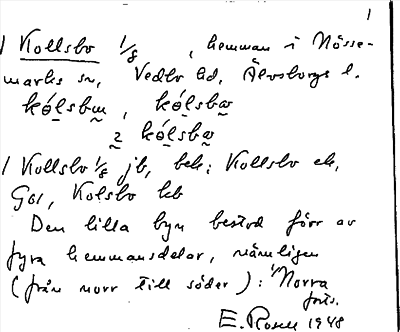 1
1 Kollsbo 1/8, hemman i Nösse-
marks sn, Vedbo hd, Älvsborgs l.
kó̲lsbɯ, kó̲lsbω
2 kó̲lsbω
1 Kollsbo 1/8 jb, bek: Kollsbo ek,
GS1, Kolsbo kb
Den lilla byn bestod förr av
fyra hemmansdelar, nämligen
(från norr till söder): 1) Norra
forts.
E. Rosell 1948